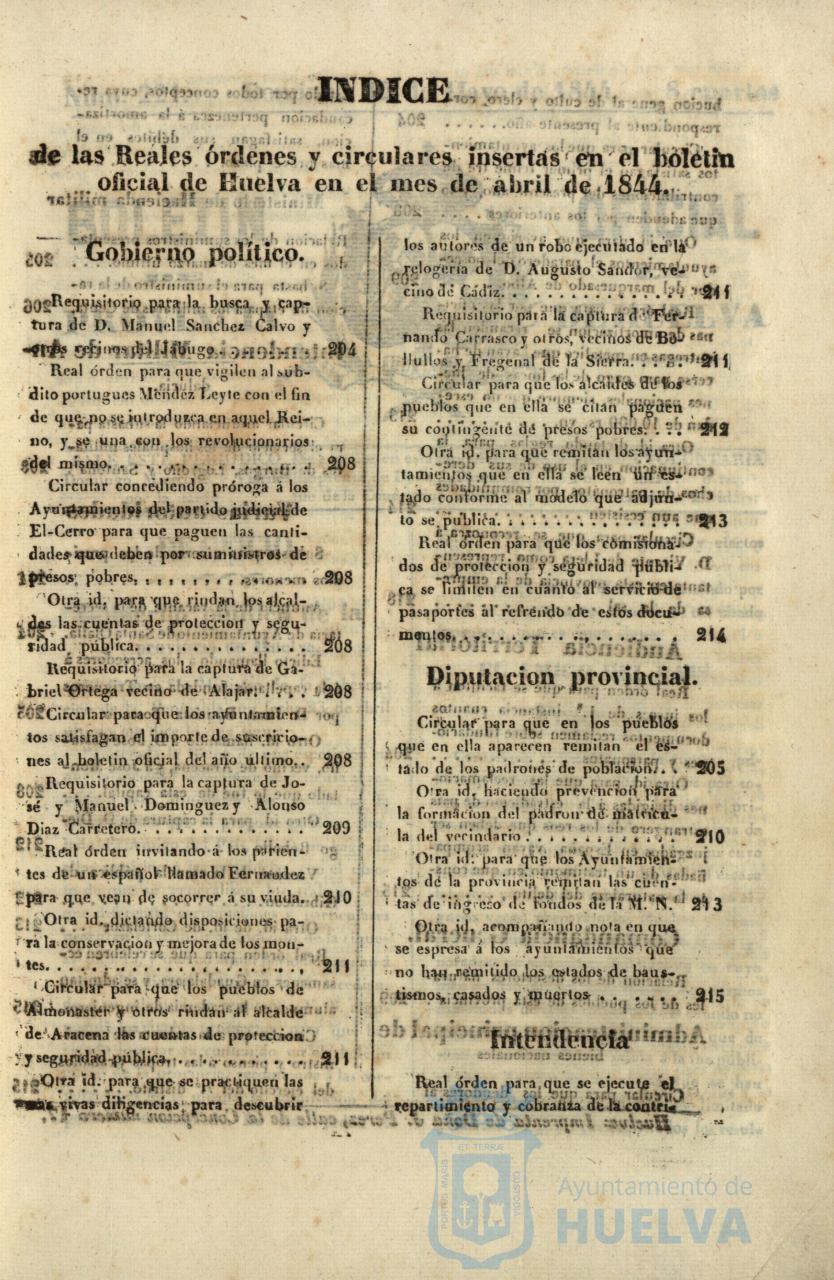 INDICE
de las Reales órdenes y circulares insertas en el boletin
oficial de Huelva en el mes de abril de 1844.
Gobierno político.
Requisitorio para la busca y cap-
tura de D. Manuel Sanchez Calvo y
otros vecinos del Jabugo. 204
Real órden para que vigilen al sub-
dito portugues Méndez Leyte con el fin
de que no se introduzca en aquel Rei-
no, y se una con los revolucionarios
del mismo. . . . . . . . . . . . . . 208
Circular concediendo próroga á los
Ayuntamientos del partido judicial de
El-Cerro para que paguen las canti-
dades que deben por suministros de
presos pobres. . . . . . . . . . . . 208
Otra id. para que rindan los alcal-
des las cuentas de proteccion y segu-
ridad pública. . . . . . . . . . . . 208
Requisitorio para la captura de Ga-
briel Ortega vecino de Alajar. . . . . 208
Circular para que los ayuntamien-
tos satisfagan el importe de suscricio-
nes al boletin oficial del año último. . 208
Requisitorio para la captura de Jo-
sé y Manuel Dominguez y Alonso
Diaz Carretero. . . . . . . . . . . . . 209
Real órden invitando á los parien-
tes de un español llamado Fernandez
para que vean de socorrer á su viuda. . 210
Otra id. dictando disposiciones pa-
ra la conservacion y mejora de los mon-
tes. . . . . . . . . . . . . . . . . . . 211
Circular para que los pueblos de
Almonaster y otros rindan al alcalde
de Aracena las cuentas de proteccion
y seguridad pública. . . . . . . . . . 211
Otra id. para que se practiquen las
mas vivas diligencias para descubrir
los autores de un robo ejecutado en la
relogería de D. Augusto Sandor, ve-
cino de Cádiz. . . . . . . . . . . . . 211
Requisitorio para la captura de Fer-
nando Carrasco y otros, vecinos de Bo-
llullos y Fregenal de la Sierra. . . . . 211
Circular para que los alcaldes de los
pueblos que en ella se citan paguen
su contingente de presos pobres. . . . 212
Otra id. para que remitan los ayun-
tamientos que en ella se leen un es-
tado conforme al modelo que adjun-
to se publica. . . . . . . . . . . . . 213
Real órden para que los comisiona-
dos de proteccion y seguridad públi-
ca se limiten en cuanto al servicio de
pasaportes al refrendo de estos docu-
mentos. . . . . . . . . . . . . . . . 214
Diputacion provincial.
Circular para que en los pueblos
que en ella aparecen remitan el es-
tado de los padrones de poblacion. . . 205
Otra id. haciendo prevencion para
la formacion del padron de matricu-
la del vecindario. . . . . . . . . . . 210
Otra id. para que los Ayuntamien-
tos de la provincia remitan las cuen-
tas de ingreso de fondos de la M. N. 213
Otra id. acompañando nota en que
se espresa á los ayuntamientos que
no han remitido los estados de baus-
tismos, casados y muertos . . . . . . . 215
Intendencia
Real órden para que se ejecute el
repartimiento y cobranza de la contri-
Ayuntamiento de
HUELVA